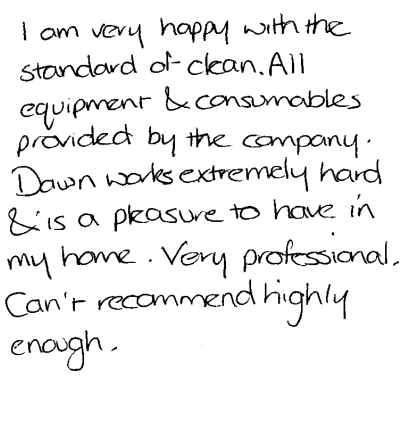 I am very happy with the
standard of clean. All
equipment & consumables
provided by the company.
Dawn works extremely hard
& is a pleasure to have in
my home. Very professional.
Can't recommend highly
enough.